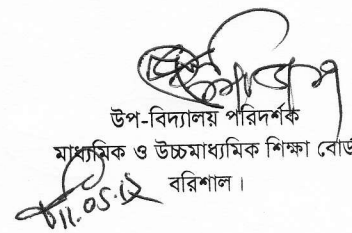 উপ-বিদ্যালয় পরিদর্শক
মাধ্যমিক ও উচ্চমাধ্যমিক শিক্ষা বোর্ড
বরিশাল।